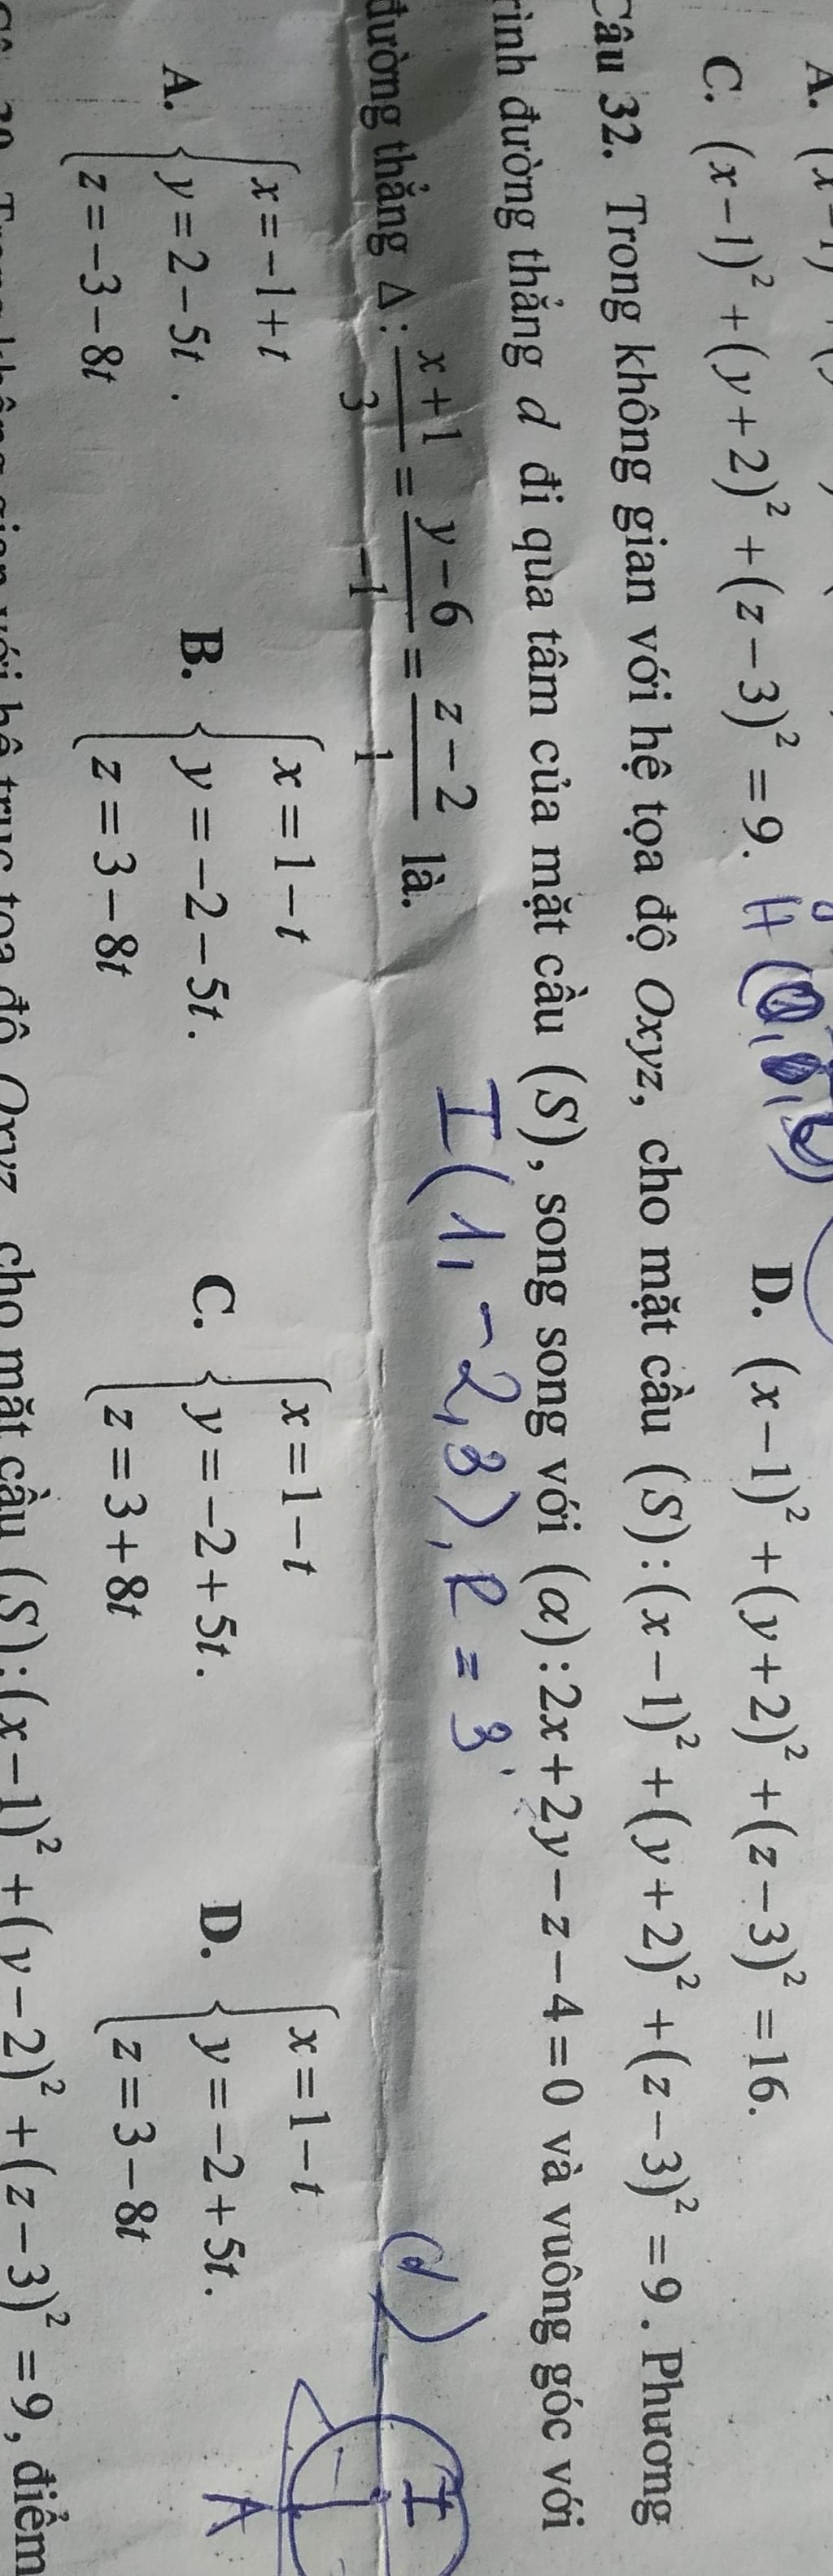 A. (x-1)
C. (x-1)² + (y+2)² + (z-3)² = 9. D. (x-1)² + (y+2)² + (z-3)² = 16.
Câu 32. Trong không gian với hệ tọa độ Oxyz, cho mặt cầu (S):(x-1)² + (y+2)² + (z-3)² = 9. Phương
rình đường thẳng d đi qua tâm của mặt cầu (S), song song với (α): 2x+2y-z-4=0 và vuông góc với
đường thẳng Δ: (x+1)/3 = (y-6)/-1 = (z-2)/1 là.
I(1,-2,3), R = 3
(d)
I
A
A. { x=-1+t
y=2-5t .
z=-3-8t
B. { x=1-t
y=-2-5t.
z=3-8t
C. { x=1-t
y=-2+5t.
z=3+8t
D. { x=1-t
y=-2+5t.
z=3-8t
cho mặt cầu (S):(x-1)² + (y-2)² + (z-3)² = 9, điểm